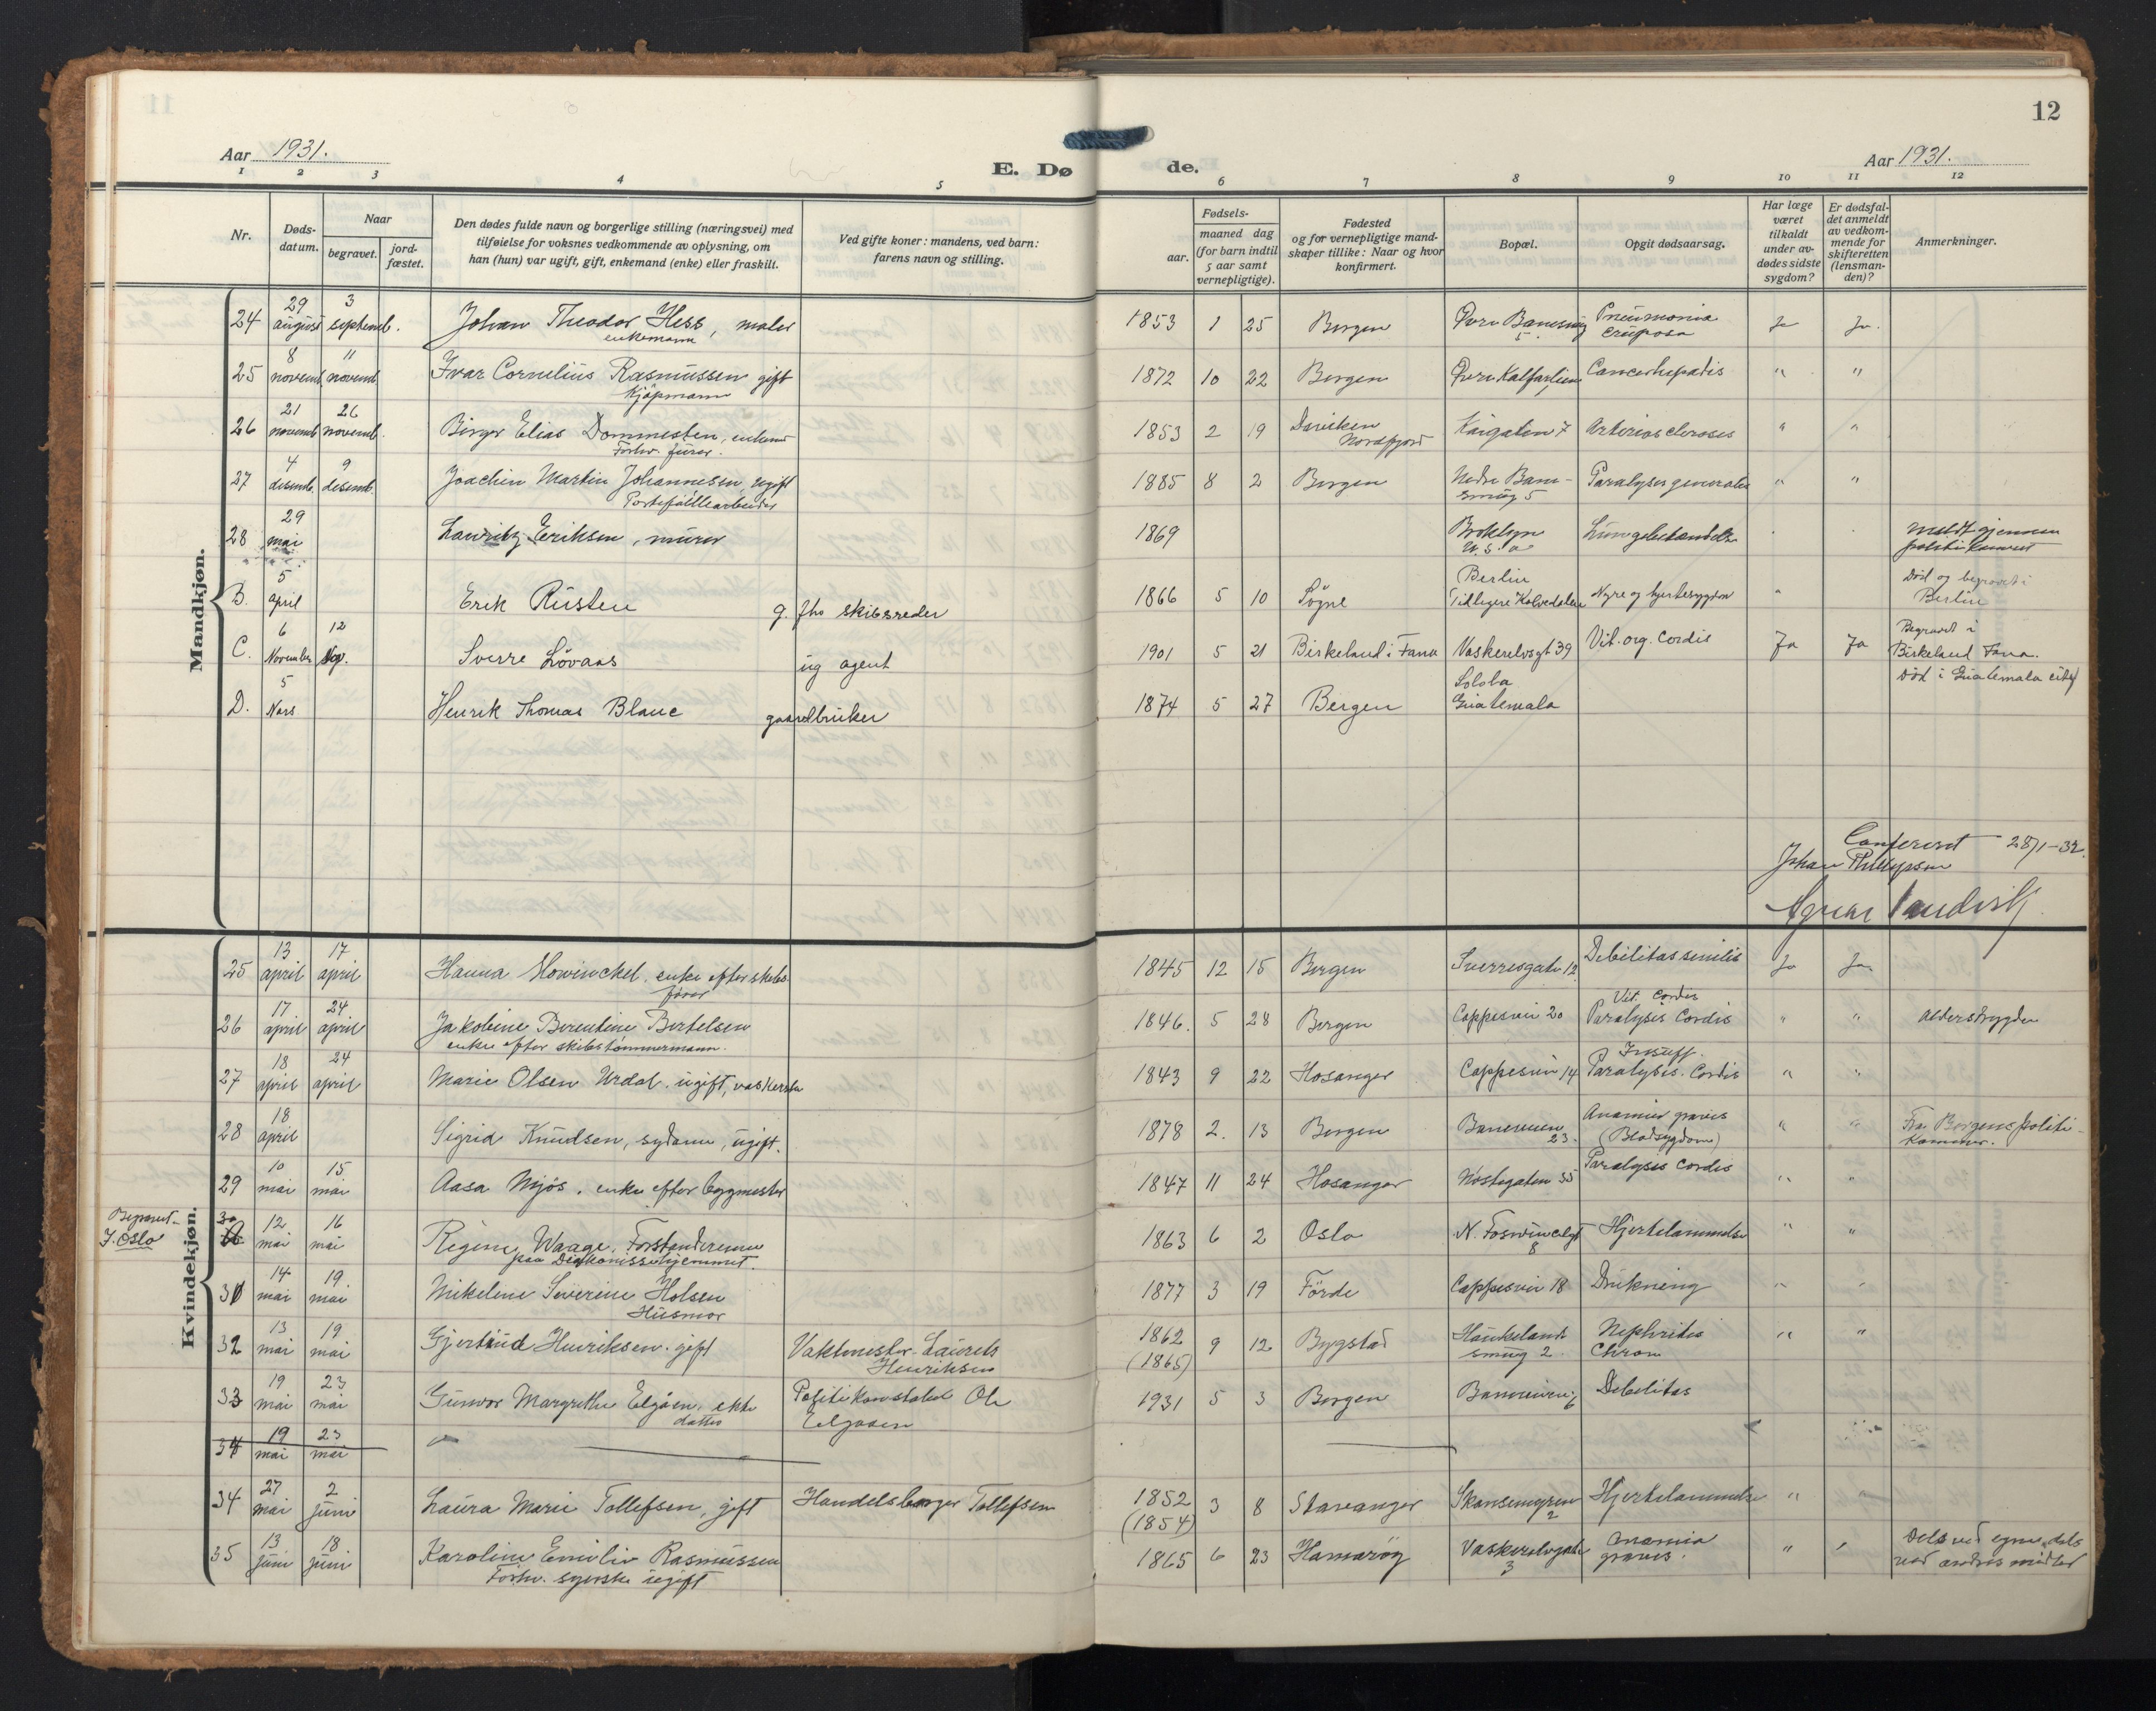 12
Aar 1931.
E. Dø de.
Aar 1931.
1 2 3 4 5 6 7 8 9 10 11 12
Nr.
Døds-
datum.
Naar
begravet.
jord-
fæstet.
Den dødes fulde navn og borgerlige stilling (næringsvei) med
tilføielse for voksnes vedkommende av oplysning, om
han (hun) var ugift, gift, enkemand (enke) eller fraskilt.
Ved gifte koner: mandens, ved barn:
farens navn og stilling.
Fødsels-
aar.
maaned dag
(for barn indtil
5 aar samt
vernepligtige).
Fødested
og for vernepligtige mand-
skaper tillike: Naar og hvor
konfirmert.
Bopæl.
Opgit dødsaarsag.
Har læge
været
tilkaldt
under av-
dødes sidste
sygdom?
Er dødsfal-
det anmeldt
av vedkom-
mende for
skifteretten
(lensman-
den)?
Anmerkninger.
Mandkjøn.
24 29 august 3 septemb. Johan Theodor Hess, maler 1853 1 25 Bergen Øvre Banesmug Pneumonia Ja Ja.
enkemann 5. cruposa
25 8 novemb 11 novemb Ivar Cornelius Rasmussen gift 1872 10 22 Bergen Øvre Kalfarlien Cancer hepatis " "
Kjøpmann
26 21 novemb 26 novemb. Birger Elias Dommesten, enkem 1853 2 19 Davicken Kaigaten 7 Arteriosclerosis " "
Forhv. furer. Nordfjord
27 4 desemb. 9 desemb. Joachim Martin Johannesen, ugift 1885 8 2 Bergen Nedre Bane- Paralysis generalis " "
Porteføillearbeider smug 5
28 29 mai Lauritz Eriksen, murer 1869 Broklyn Lungebetændelse Meldt gjennem
U.S.a politikamret
B. 5 april Erik Rusten g. fhv skibsreder 1866 5 10 Sogne Berlin Nyre og hjertesygdom " Død og begravet i
Tidligere Kalvedalen Berlin
C. 6 November 12 Nov. Sverre Lövaas ug agent 1901 5 21 Birkeland i Fana Vaskerelvsgt 39 Vit. org. Cordis Ja Ja Begravet i
Birkeland Fana.
D. 5 Mars Henrik Thomas Blanc gaardbruker 1874 5 27 Bergen Solola Død i Guatemala city
Guatemala
Confereret 28/1-32.
Johan Phillipsen
Kvindekjøn.
25 13 april 17 april Hanna Mowinckel. enke efter skibs- 1845 12 15 Bergen Sverresgate 12 Debilitas senilis Ja Ja
fører
26 17 april 24 april Jakobine Berentine Bertelsen 1846. 5 28 Bergen Cappesvei 20 Vit. Cordis " " Alderstrygden
enke efter skibstømmermann. Paralysis Cordis
27 18 april 24 april Marie Olsen Urdal. ugift, vaskerske 1843 9 22 Hosanger Cappesvei 14 Insuff. " "
Paralysis. Cordis
28 18 april Sigrid Knudsen, sydame, ugift. 1878 2. 13 Bergen Baneveien Anæmia gravis " " Fra Bergens politi-
23. (Blodsygdom) kammer.
29 10 mai 15 mai Aasa Mjøs. enke efter bygmester 1847 11 24 Hosanger Nøstegaten 35 Paralysis Cordis " "
Begravet.
I. Oslo
30 12 mai 16 mai Regine Waage. Forstanderinne 1863 6 2 Oslo N. Hjertelammelse " "
paa Diakonissehjemmet. 8
31 14 mai 19 mai Mikeline Severine Holsen 1877 3 19 Førde Cappesvei 18 Drukning " "
Husmor
32 13 mai 19 mai Gjertrud Henriksen. gift Vaktmester Laurits 1862 9 12 Bygstad Haukelands Nephritis " "
Henriksen (1865) smug 2. Chron
33 19 mai 23 mai Gunvor Margrethe Elgåen. ekte Politikonstabel Ole 1931 5 3 Bergen Baneveien 6 Debilitas
datter Elgaaen
34 19 mai 23 mai "
34 27 mai 2 juni Laura Marie Tollefsen, gift Handelsborger Tollefsen 1852 3 8 Stavanger Skansemyren Hjertelammelse " "
(1854) 2
35 13 juni 18 juni Karoline Emilie Rasmussen 1865 6 23 Hamarøy Vaskerelvgate Anæmia " " Dels ved egne, dels
Forhv. syerske ugift 3 gravis. ved andres midler